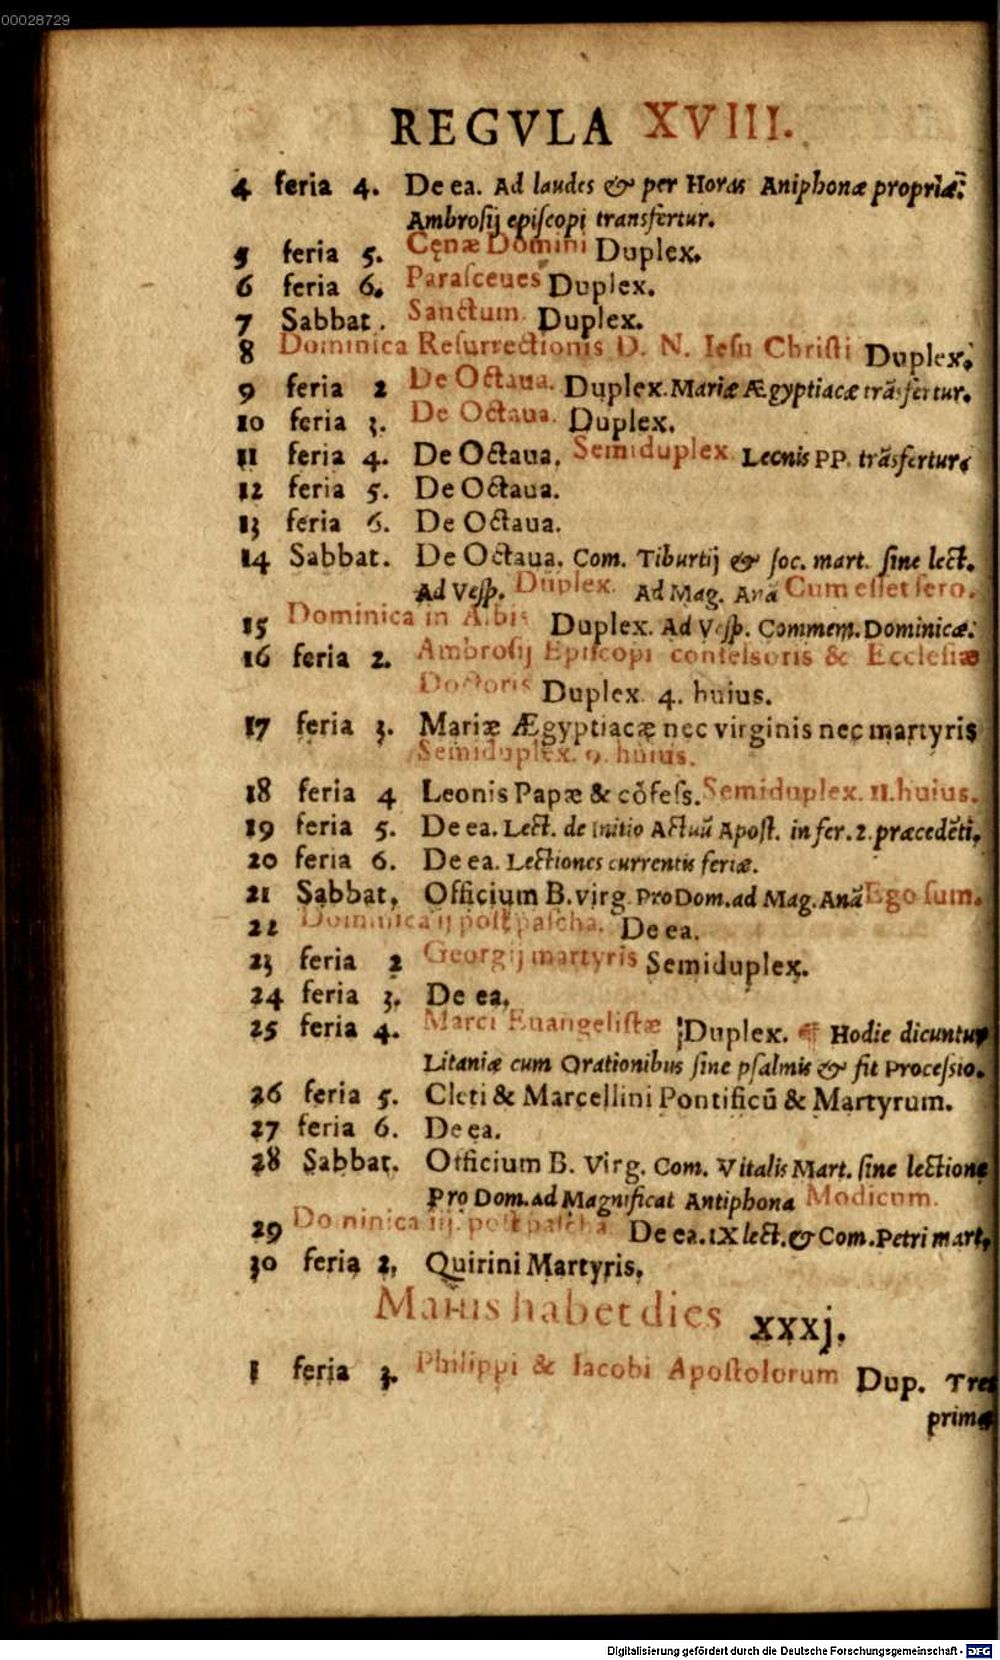 00028729
REGVLA XVIII.
4 feria 4. De ea. Ad laudes & per Horas Aniphonæ propriæ:
Ambrosij episcopi transfertur.
5 feria 5. Cęnæ Domini Duplex.
6 feria 6. Parasceues Duplex.
7 Sabbat. Sanctum. Duplex.
8 Dominica Resurrectionis D. N. Iesu Christi Duplex.
9 feria 2 De Octaua. Duplex. Mariæ Ægyptiacæ trāsfertur.
10 feria 3. De Octaua. Duplex.
11 feria 4. De Octaua. Semiduplex. Leonis PP. trāsfertur.
12 feria 5. De Octaua.
13 feria 6. De Octaua.
14 Sabbat. De Octaua. Com. Tiburtij & soc. mart. sine lect.
Ad Vesp. Duplex. Ad Mag. Anā Cum esset sero.
15 Dominica in Albis Duplex. Ad Vesp. Commem. Dominicæ.
16 feria 2. Ambrosij Episcopi confessoris & Ecclesiæ
Doctoris Duplex. 4. huius.
17 feria 3. Mariæ Ægyptiacæ nec virginis nec martyris
Semiduplex. 9. huius.
18 feria 4 Leonis Papæ & cōfess. Semiduplex. 11. huius.
19 feria 5. De ea. Lect. de initio Actuū Apost. in fer. 2. præcedēti.
20 feria 6. De ea. Lectiones currentis feriæ.
21 Sabbat. Officium B. virg. Pro Dom. ad Mag. Anā Ego sum.
22 Dominica ij post pascha. De ea.
23 feria 2 Georgij martyris Semiduplex.
24 feria 3. De ea.
25 feria 4. Marci Euangelistæ Duplex. ¶ Hodie dicuntur
Litaniæ cum Orationibus sine psalmis & fit Processio.
26 feria 5. Cleti & Marcellini Pontificū & Martyrum.
27 feria 6. De ea.
28 Sabbat. Officium B. Virg. Com. Vitalis Mart. sine lectione
Pro Dom. ad Magnificat Antiphona Modicum.
29 Dominica iij. post pascha De ea. IX lect. & Com. Petri mart.
30 feria 2. Quirini Martyris.
Maius habet dies xxxj.
1 feria 3. Philippi & Iacobi Apostolorum Dup. Tres
primæ
Digitalisierung gefördert durch die Deutsche Forschungsgemeinschaft - DFG